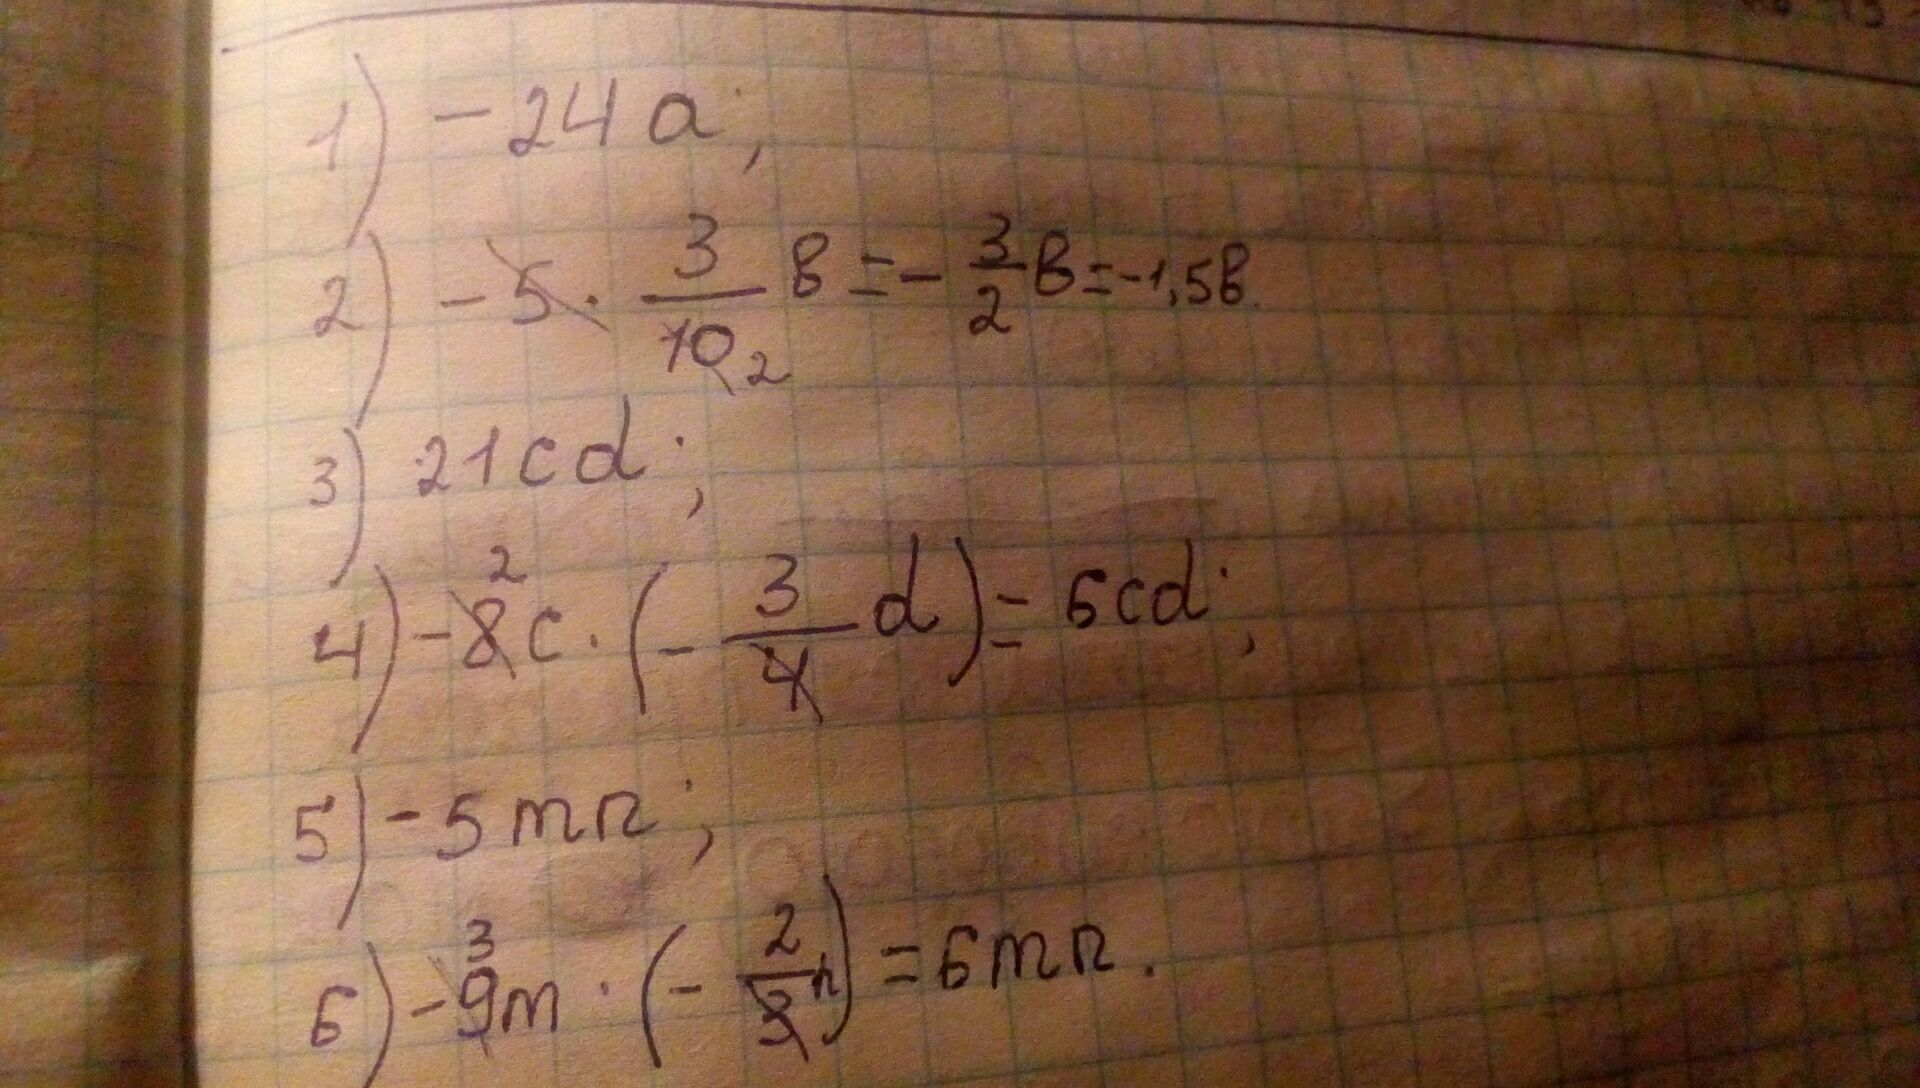 1) - 24 a;
2) - 5 · 3/10 2 в = - 3/2 в = -1,5в.
3) 21cd;
4) - 8 2 c · (- 3/4 d) = 6cd;
5) - 5mn;
6) - 9 3 m · (- 2/3 n) = 6mn.